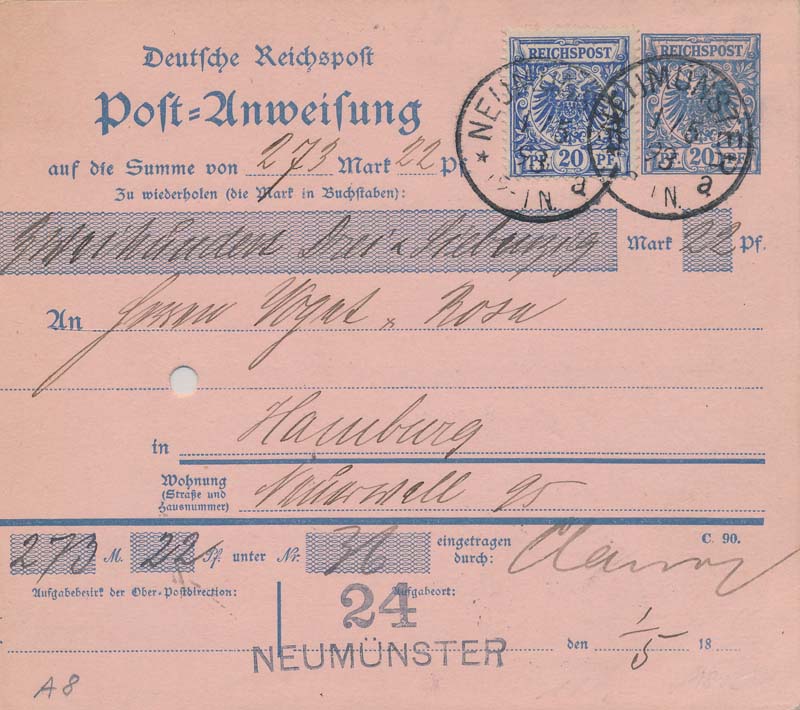 REICHSPOST REICHSPOST
20 PF. 20 PF.
NEUMÜNSTER
1 5
93
IN. a
NEUMÜNSTER
1 5
93
IN. a
Deutsche Reichspost
Post-Anweisung
auf die Summe von 273 Mark 22 Pf.
Zu wiederholen (die Mark in Buchstaben):
Zweihundert Drei u Siebenzig Mark 22 Pf.
An Herren Vogt & Rosa
in Hamburg
Wohnung
(Straße und
Hausnummer) Neuerwall 95
C. 90.
273 M. 22 Pf. unter Nr. 36 eingetragen
durch:
Aufgabebezirk der Ober-Postdirection: Aufgabeort:
24
NEUMÜNSTER den 1/5 18
A8